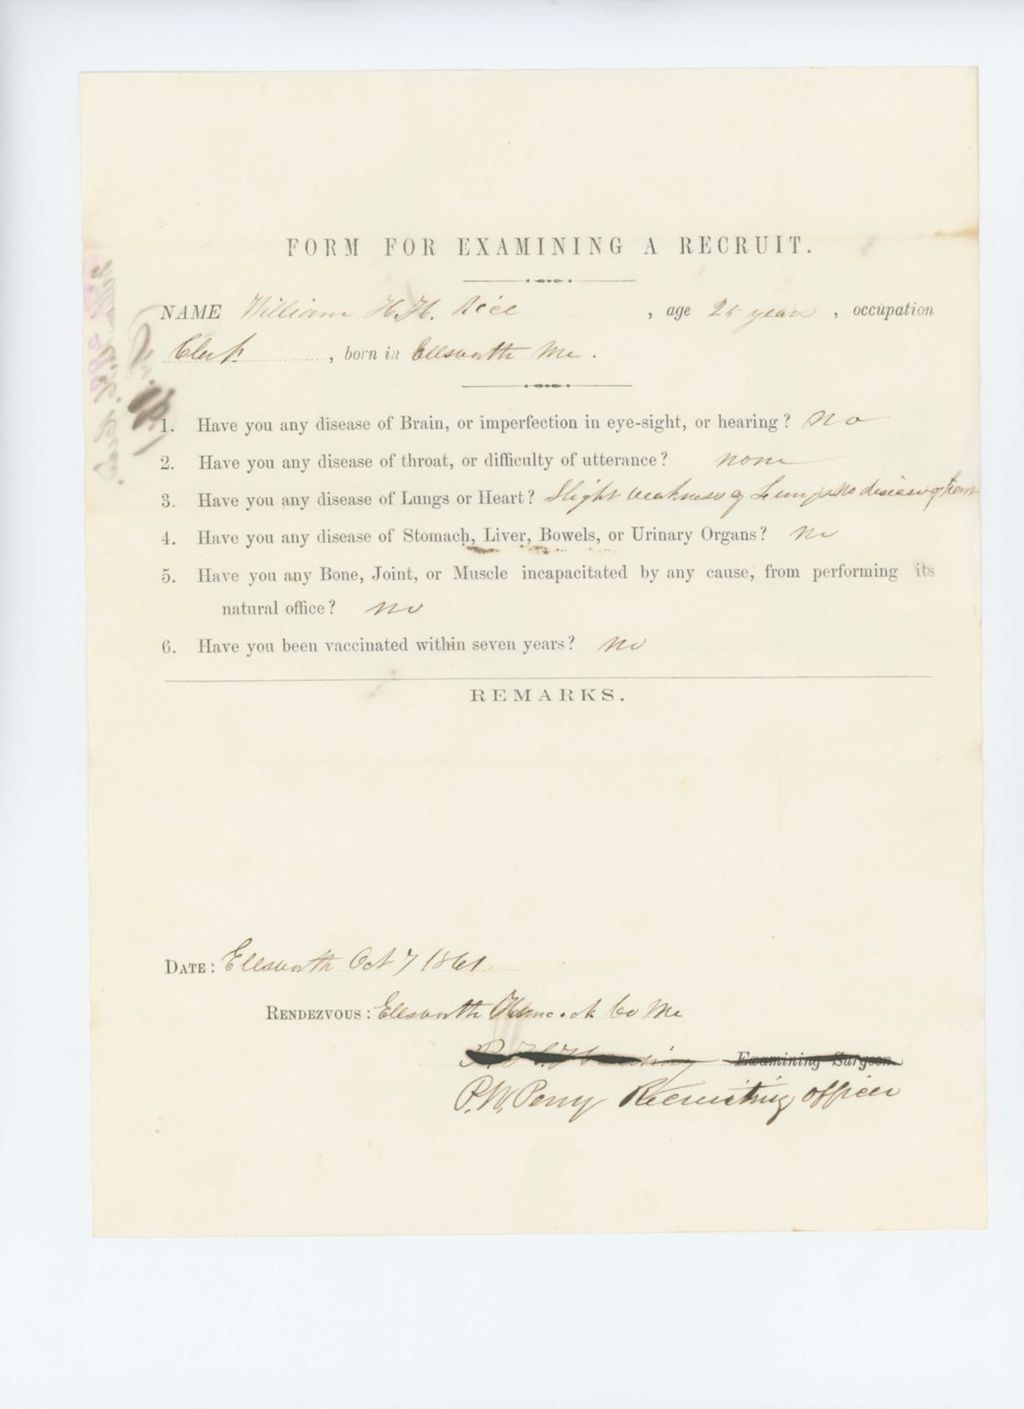 FORM FOR EXAMINING A RECRUIT.
NAME William H. H. Rice, age 25 years, occupation
Clerk, born in Ellsworth Me.
1. Have you any disease of Brain, or imperfection in eye-sight, or hearing? No
2. Have you any disease of throat, or difficulty of utterance? none
3. Have you any disease of Lungs or Heart? Slight weakness of Lungs no disease of heart
4. Have you any disease of Stomach, Liver, Bowels, or Urinary Organs? No
5. Have you any Bone, Joint, or Muscle incapacitated by any cause, from performing its
natural office? no
6. Have you been vaccinated within seven years? no
REMARKS.
DATE: Ellsworth Oct 7 1861
RENDEZVOUS: Ellsworth Hancock Co Me
Examining Surgeon
P. W. Perry Recruiting officer